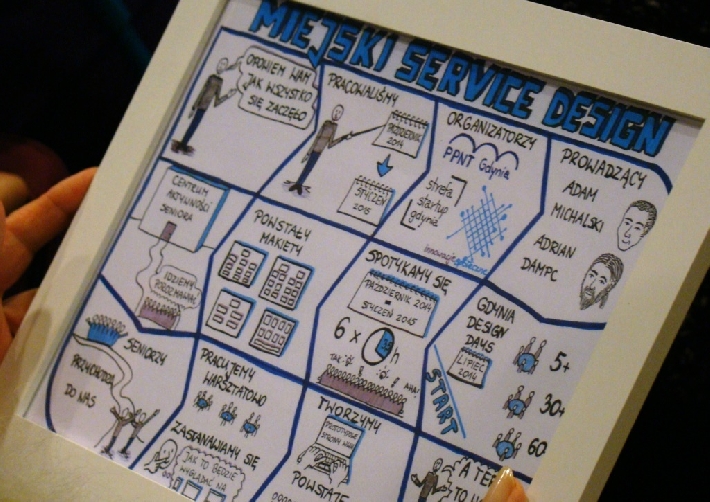 MIEJSKI SERVICE DESIGN
OPOWIEM WAM
JAK WSZYSTKO
SIĘ ZACZĘŁO
PRACOWALIŚMY
PAŹDZIERNIK
2014
STYCZEŃ
2015
ORGANIZATORZY
PPNT Gdynia
strefa
startup
gdynia
innowacje społeczne
PROWADZĄCY
ADAM
MICHALSKI
ADRIAN
DAMPC
CENTRUM
AKTYWNOŚCI
SENIORA
IDZIEMY
POROZMAWIAĆ
POWSTAŁY
MAKIETY
SPOTYKAMY SIĘ
PAŹDZIERNIK 2014
-
STYCZEŃ 2015
6 x h
GDYNIA
DESIGN
DAYS
LIPIEC
2014
START
5+
30+
60
SENIORZY
PRZYCHODZĄ
DO NAS
PRACUJEMY
WARSZTATOWO
ZASTANAWIAMY SIĘ
JAK TO BĘDZIE
WYGLĄDAĆ NA
TWORZYMY
POWSTAJE
A TERAZ
TO